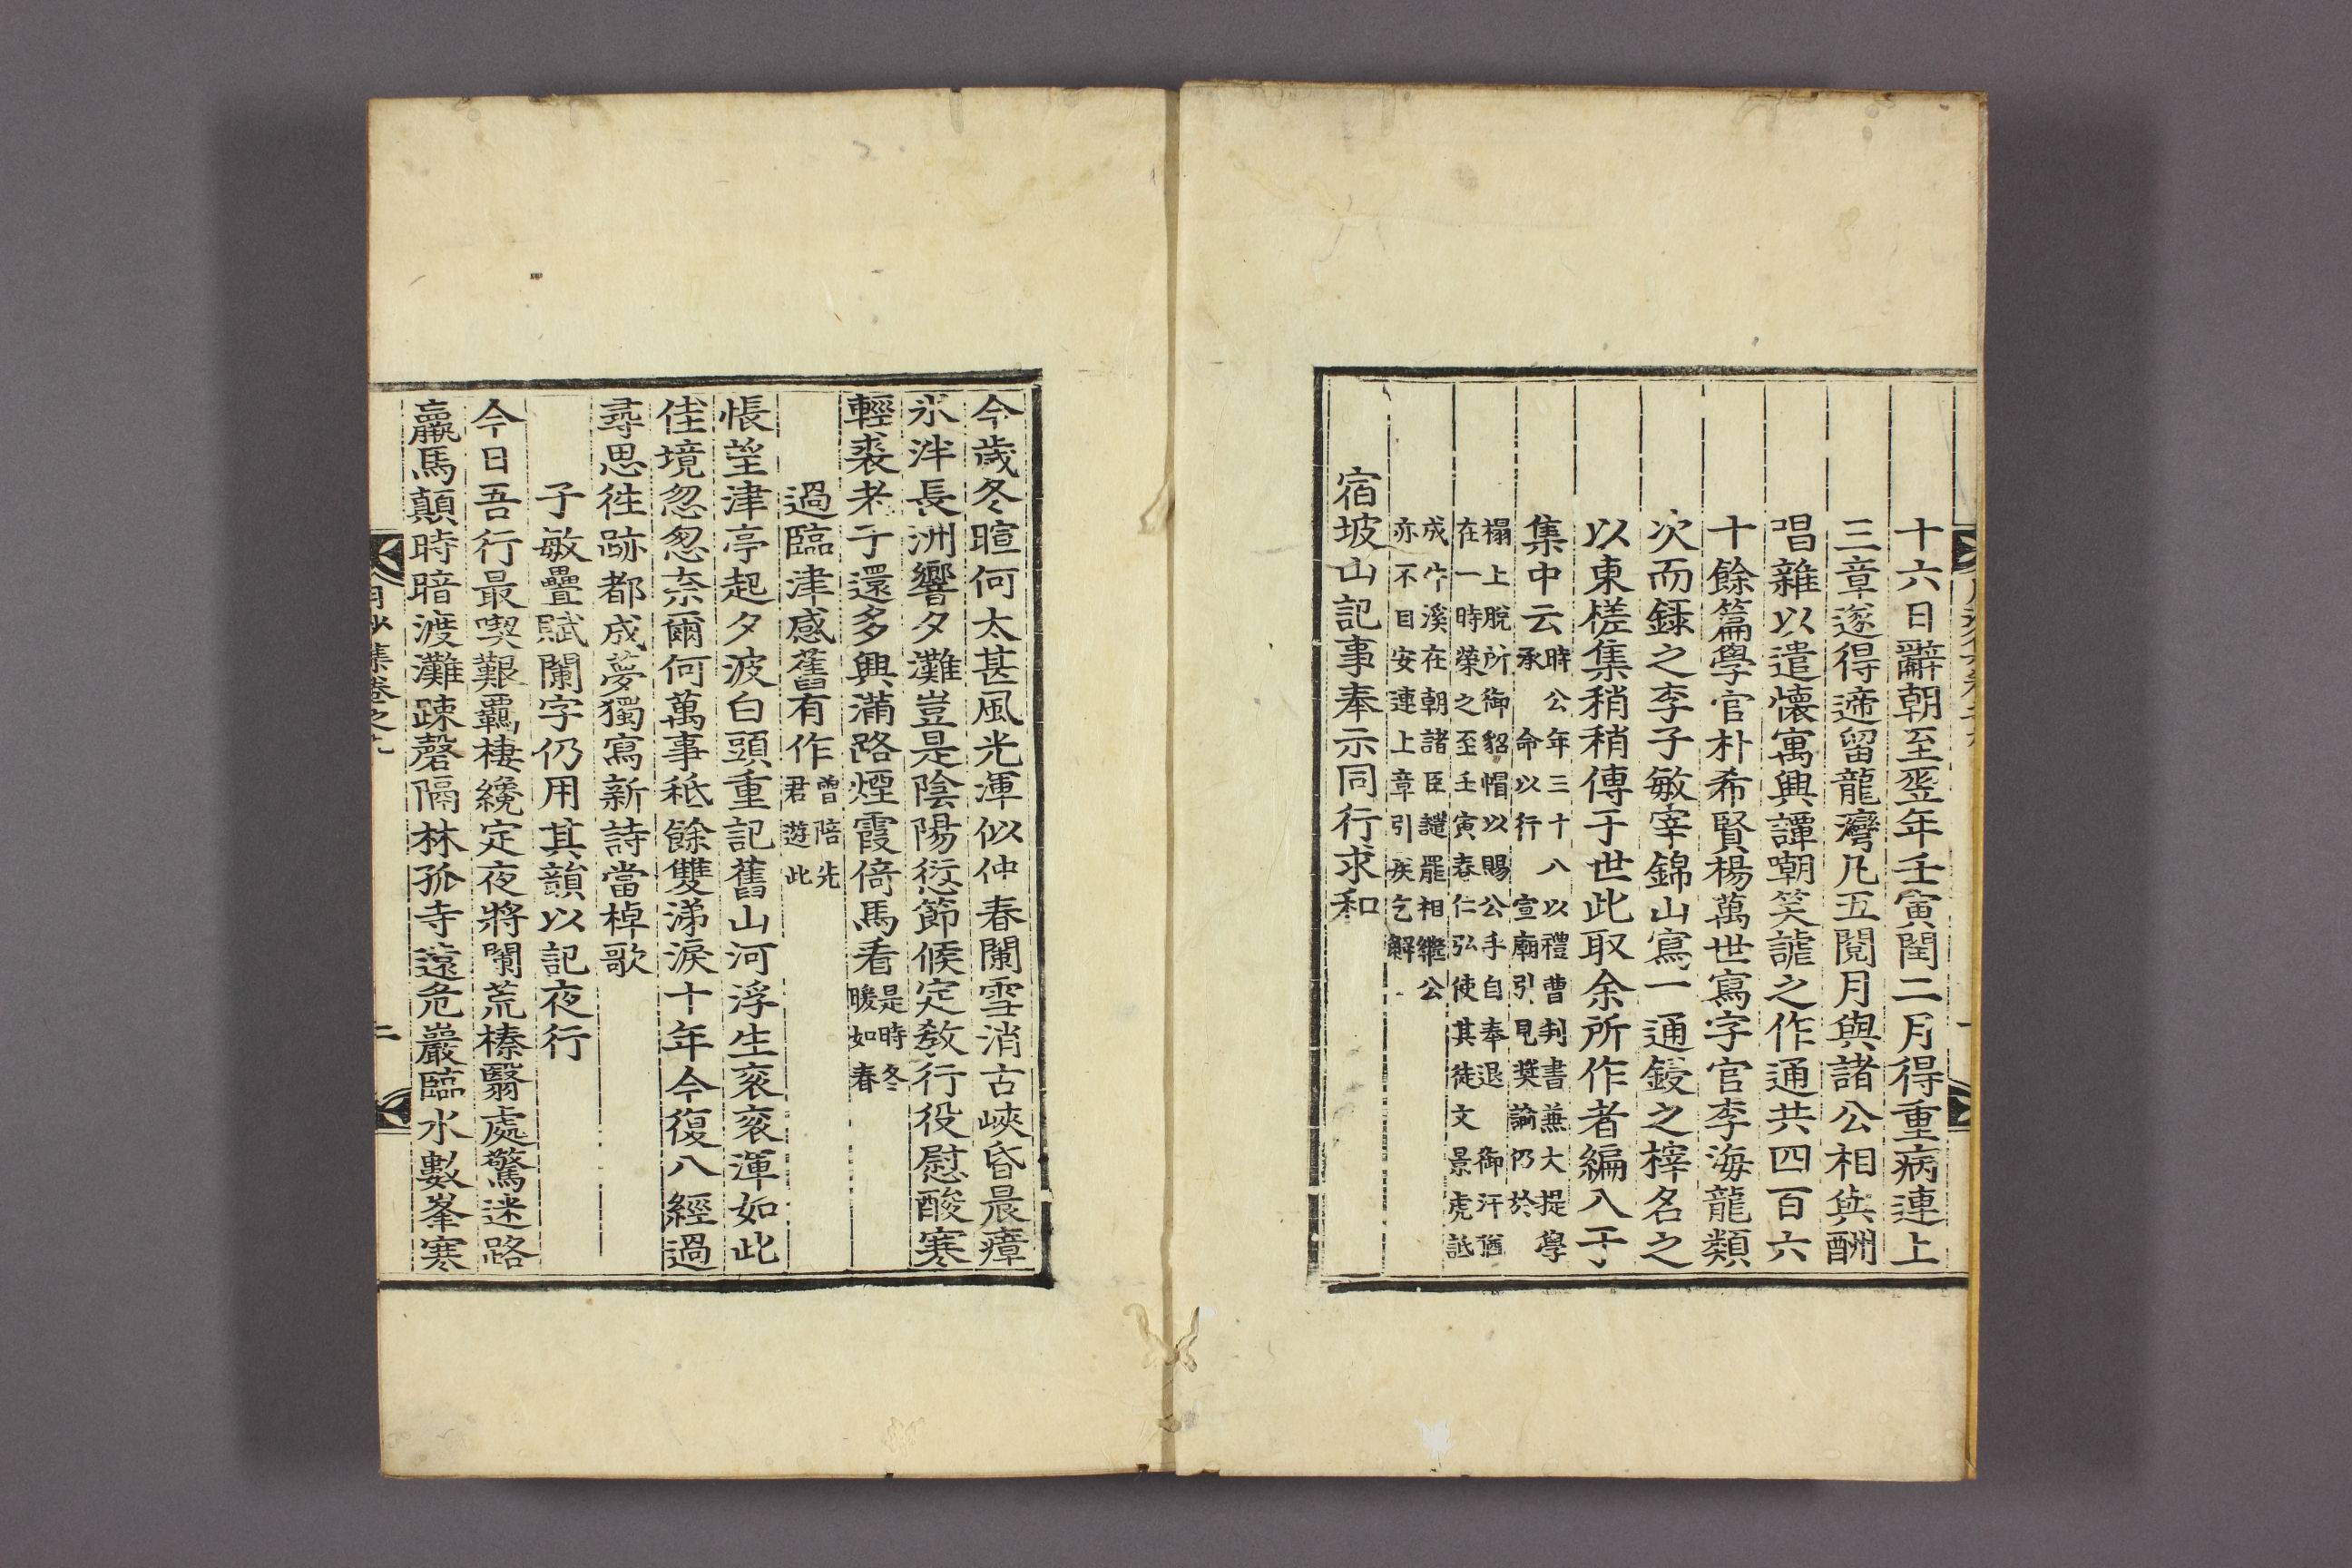 十六日辭朝至翌年壬寅閏二月得重病連上
三章遂得遞留龍灣凡五閱月與諸公相與酬
唱雜以遣懷寓興譚嘲笑謔之作通共四百六
十餘篇學官朴希賢楊萬世寫字官李海龍類
次而錄之李子敏宰錦山寫一通鋟之梓名之
以東槎集稍稍傳于世此取余所作者編入于
集中云時公年三十八以禮曹判書兼大提學
承命以行宣廟引見奬諭仍於
榻上脫所御貂帽以賜公手自奉退御汗猶
在一時榮之至壬寅春仁弘使其徒文景虎詆
成牛溪在朝諸臣譴罷相繼公
亦不自安連上章引疾乞解
宿坡山記事奉示同行求和
今歲冬暄何太甚風光渾似仲春闌雪消古峽昏晨瘴
氷泮長洲響夕灘豈是陰陽愆節候定敎行役慰酸寒
輕裘老子還多興滿路煙霞倚馬看是時冬
暖如春
過臨津感舊有作曾陪先
君遊此
悵望津亭起夕波白頭重記舊山河浮生衮衮渾如此
佳境忽忽奈爾何萬事秪餘雙涕淚十年今復八經過
尋思徃跡都成夢獨寫新詩當棹歌
子敏疊賦闌字仍用其韻以記夜行
今日吾行最喫艱覊棲纔定夜將闌荒榛翳處驚迷路
羸馬顚時暗渡灘疎磬隔林孤寺遠危巖臨水數峯寒
月沙集卷之九
二